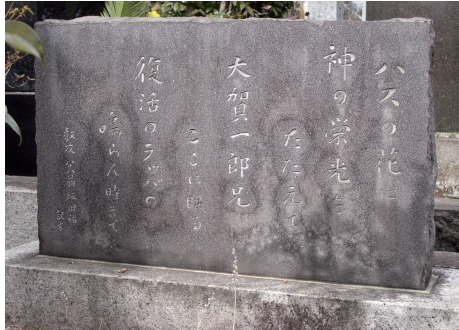 ハスの花と
神の栄光を
たたえて
大賀一郎兄
ここに眠る
復活のラッパの
鳴らん時まで